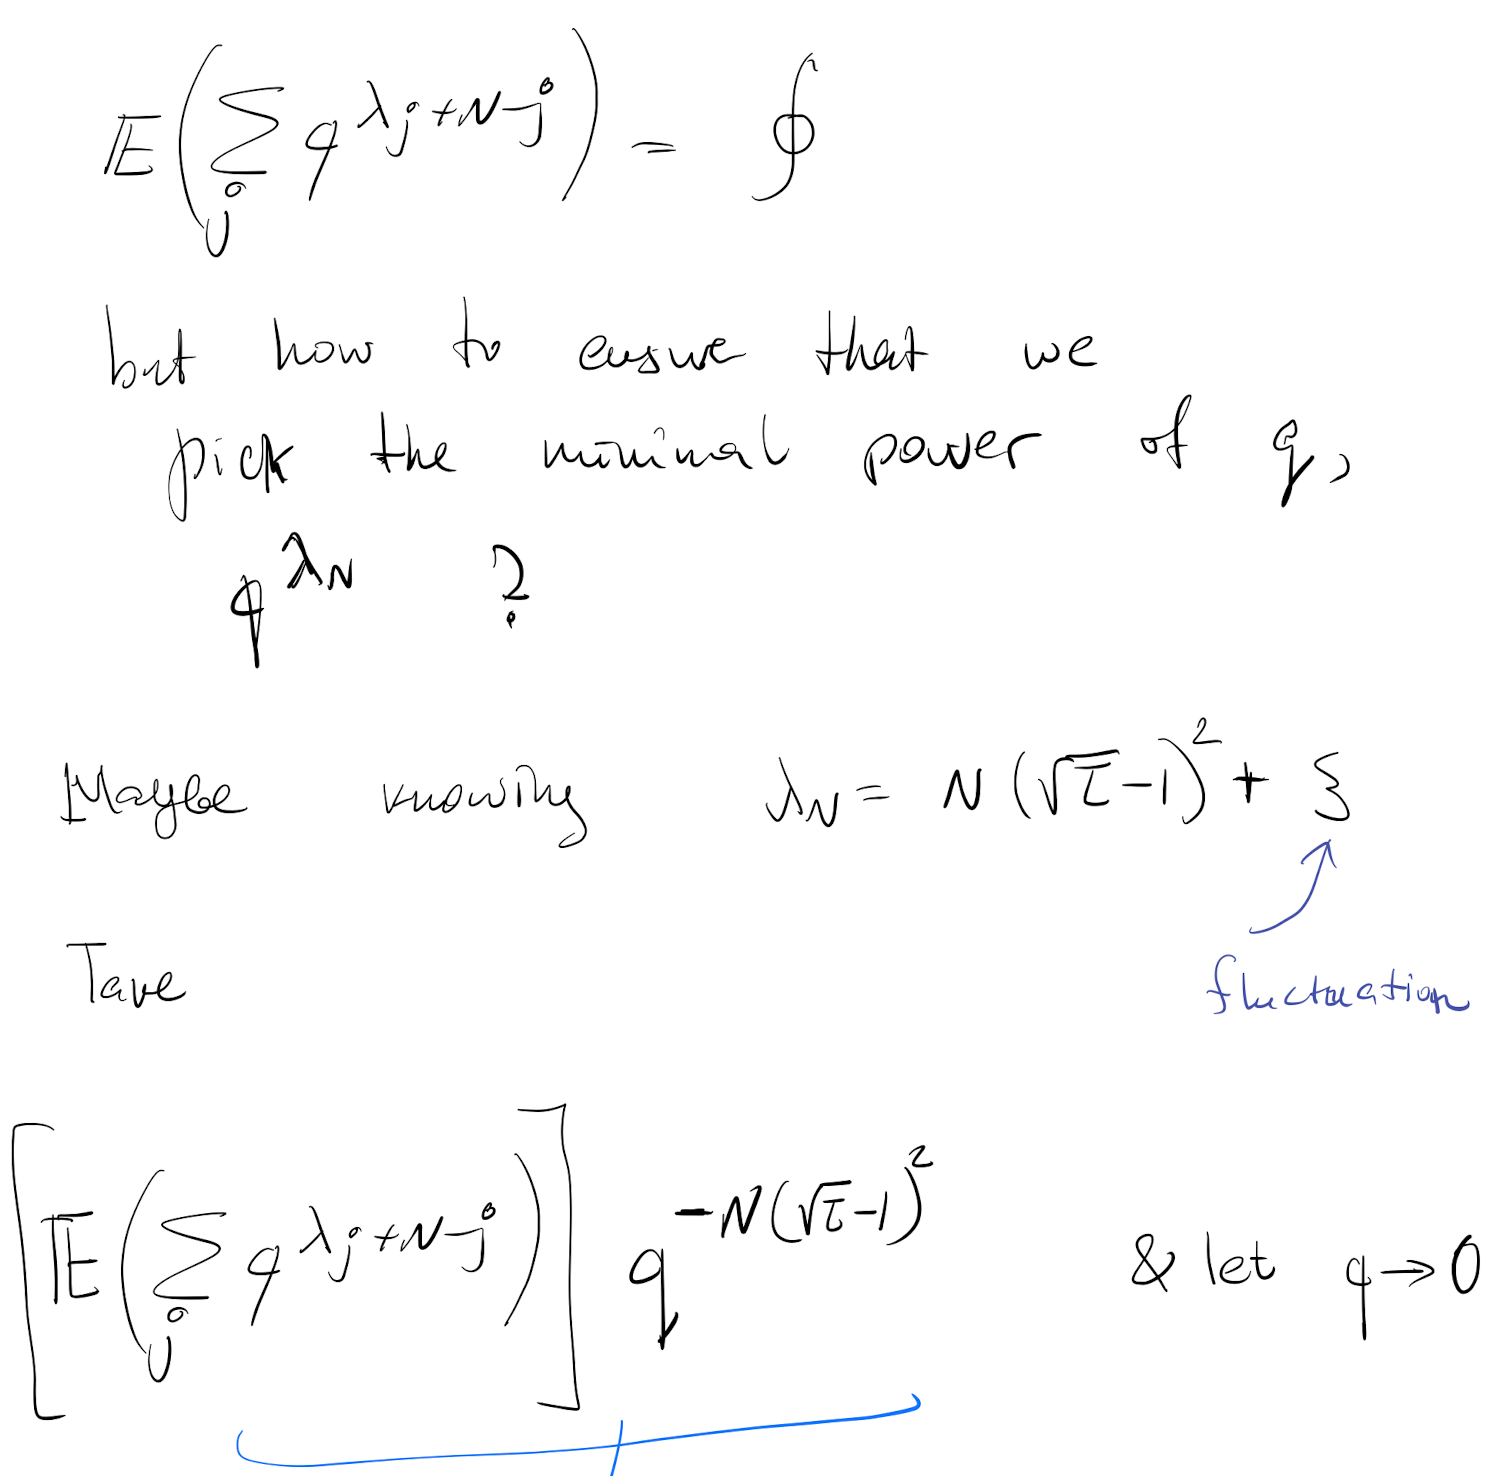 𝔼(∑_j q^{λ_j+N-j}) = ∮
but how to ensure that we
pick the minimal power of q,
q^{λ_N} ?
Maybe knowing λ_N = N(√τ-1)^2 + ξ
fluctuation
Take
[𝔼(∑_j q^{λ_j+N-j})] q^{-N(√τ-1)^2} & let q→0